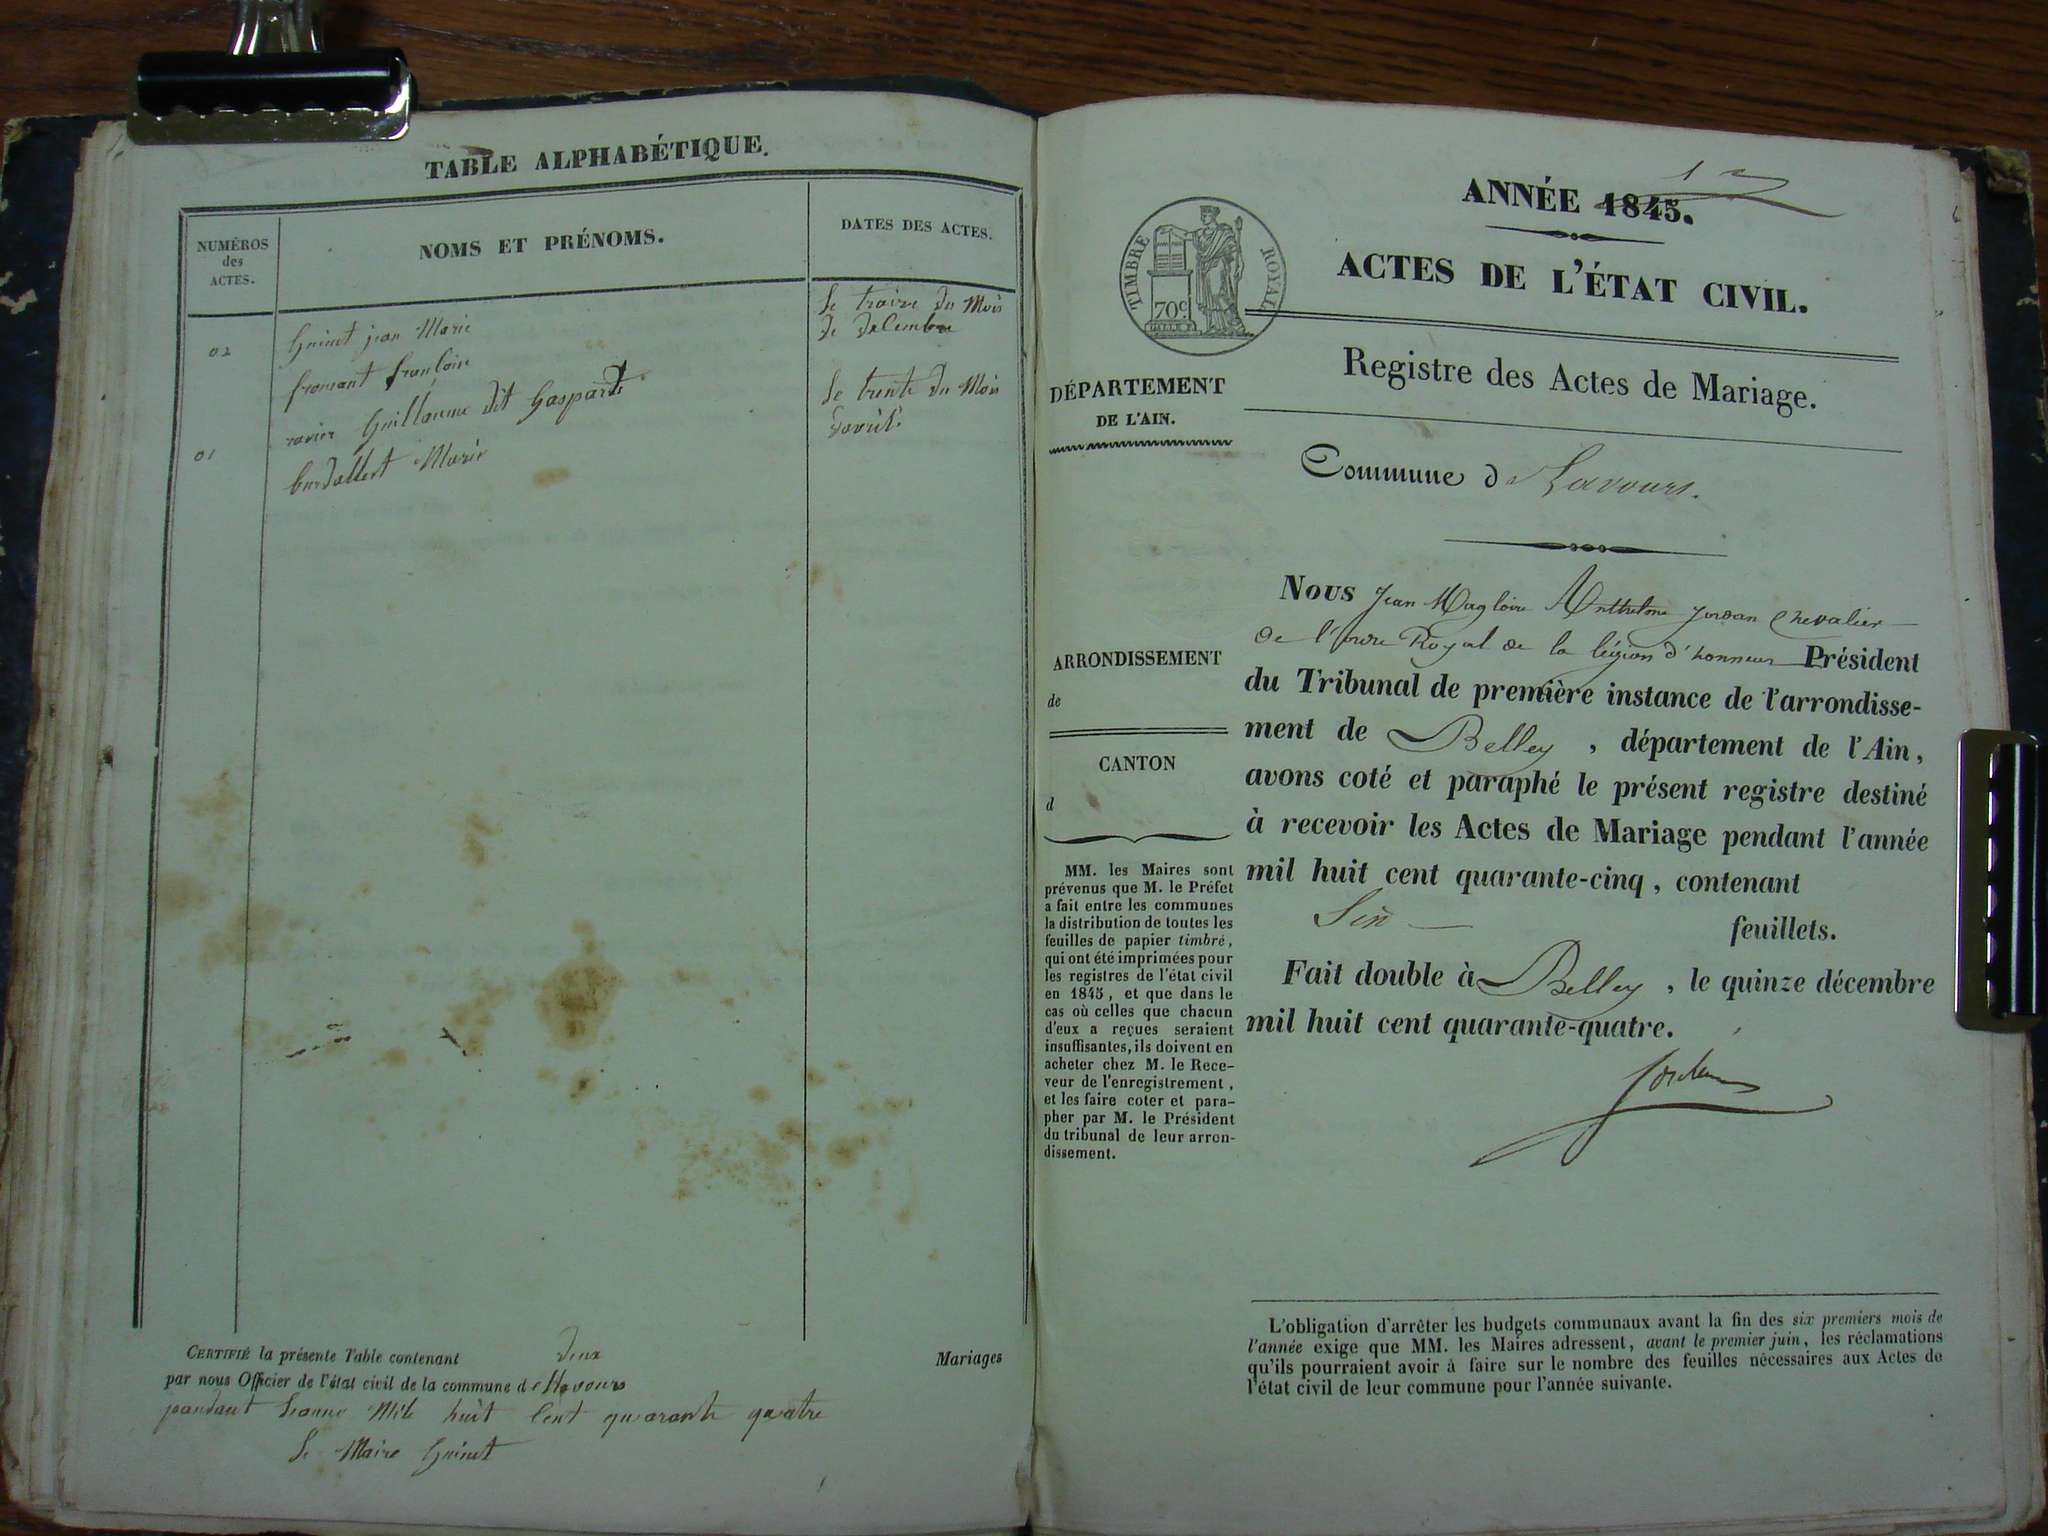 TABLE ALPHABÉTIQUE.
NUMÉROS
des
ACTES.
NOMS ET PRÉNOMS.
DATES DES ACTES.
02
Guinet jean Marie
fromant francoise
le traize du Mois
de decembre
01
ravier Guillaume dit Gaspard
burdallert Marie
le trente du Mois
d'avril
CERTIFIÉ la présente Table contenant deux Mariages
par nous Officier de l'état civil de la commune de Lavours
pandant lanne Mile huit cent quarante quatre
le Maire Guinet
ANNÉE 1845.
ACTES DE L'ÉTAT CIVIL.
TIMBRE ROYAL
70c
Registre des Actes de Mariage.
DÉPARTEMENT
DE L'AIN.
Commune d Lavours.
ARRONDISSEMENT
de
CANTON
d
MM. les Maires sont
prévenus que M. le Préfet
a fait entre les communes
la distribution de toutes les
feuilles de papier timbré,
qui ont été imprimées pour
les registres de l'état civil
en 1845, et que dans le
cas où celles que chacun
d'eux a reçues seraient
insuffisantes, ils doivent en
acheter chez M. le Rece-
veur de l'enregistrement,
et les faire coter et para-
pher par M. le Président
du tribunal de leur arron-
dissement.
Nous Jean Magloire Anthelme Jordan Chevalier
de l'ordre Royal de la légion d'honneur Président
du Tribunal de première instance de l'arrondisse-
ment de Belley, département de l'Ain,
avons coté et paraphé le présent registre destiné
à recevoir les Actes de Mariage pendant l'année
mil huit cent quarante-cinq, contenant
feuillets.
Fait double à Belley, le quinze décembre
mil huit cent quarante-quatre.
Jordan
L'obligation d'arrêter les budgets communaux avant la fin des six premiers mois de
l'année exige que MM. les Maires adressent, avant le premier juin, les réclamations
qu'ils pourraient avoir à faire sur le nombre des feuilles nécessaires aux Actes de
l'état civil de leur commune pour l'année suivante.